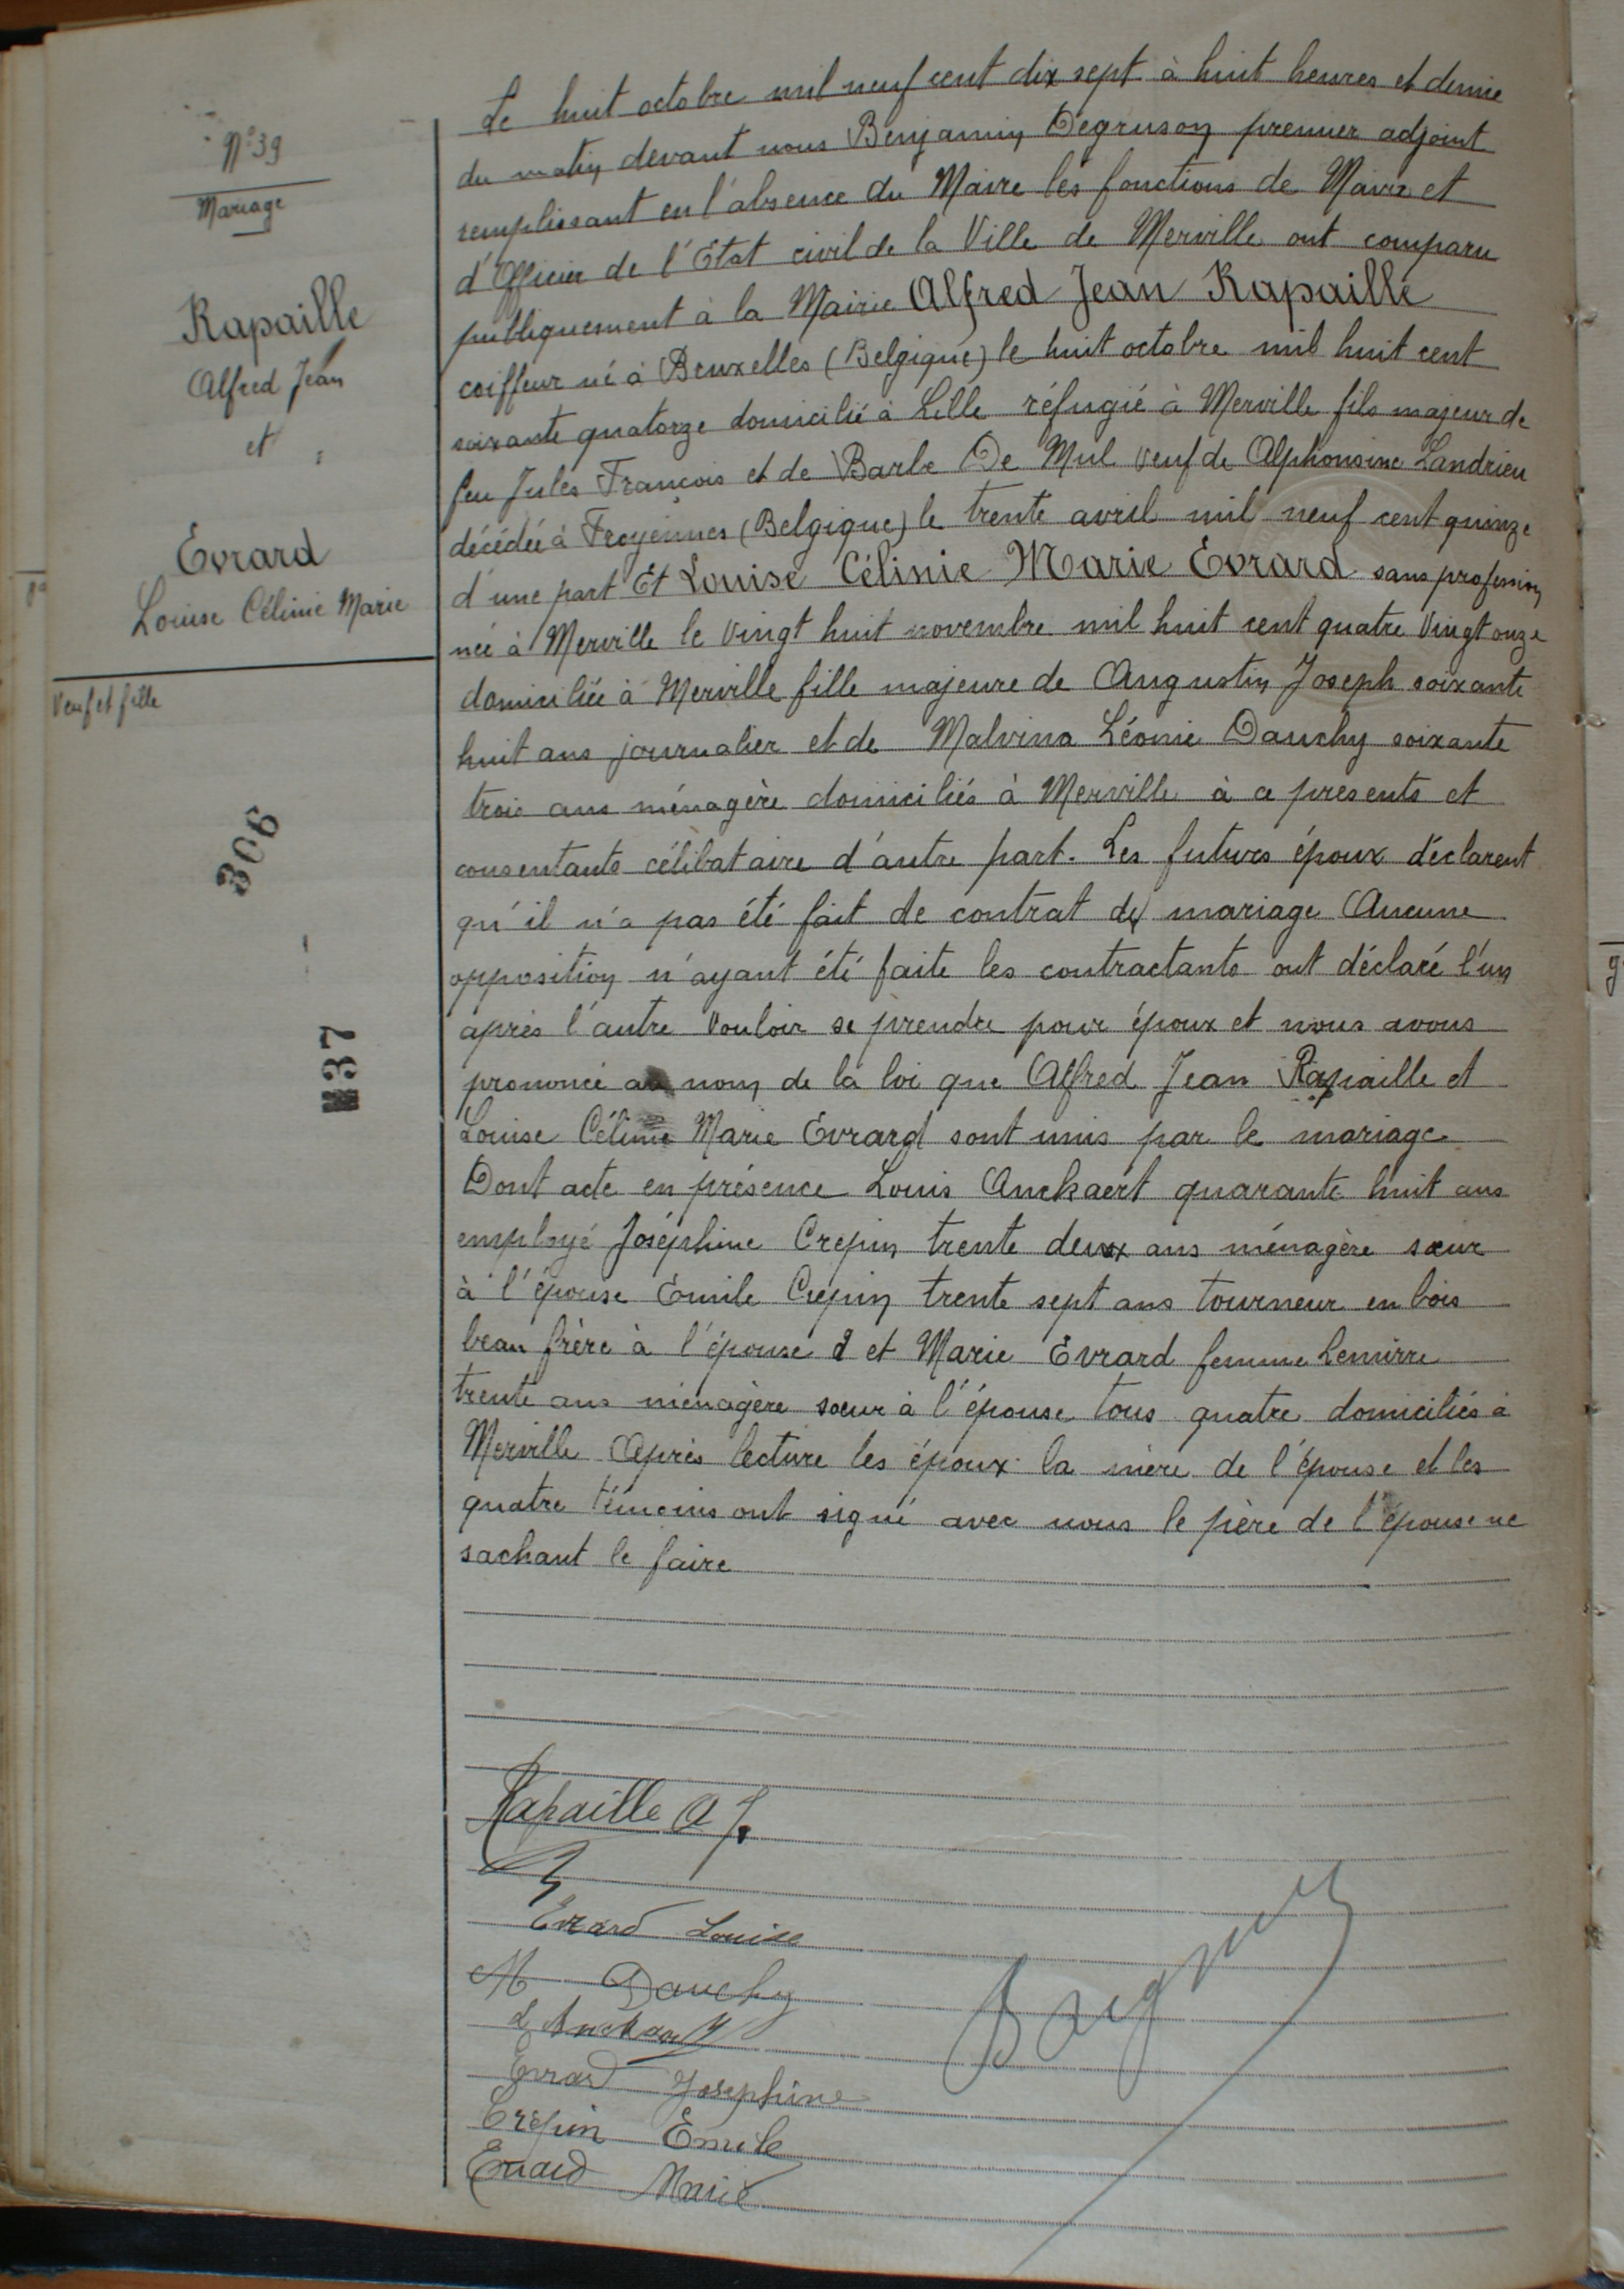 N° 39
Mariage
Rapaille
Alfred Jean
et
Evrard
Louise Célinie Marie
Veuf et fille
306
37
Le huit octobre mil neuf cent dix sept à huit heures et demie
du matin devant nous Benjamin Degruson premier adjoint
remplissant en l'absence du Maire les fonctions de Maire et
d'Officier de l'Etat civil de la Ville de Merville ont comparu
publiquement à la Mairie Alfred Jean Rapaille
coiffeur né à Bruxelles (Belgique) le huit octobre mil huit cent
soixante quatorze domicilié à Lille réfugié à Merville fils majeur de
feu Jules François et de Barbe De Mul veuf de Alphonsine Landrieu
décédée à Froyennes (Belgique) le trente avril mil neuf cent quinze
d'une part Et Louise Célinie Marie Evrard sans profession
née à Merville le vingt huit novembre mil huit cent quatre vingt onze
domiciliée à Merville fille majeure de Augustin Joseph soixante
huit ans journalier et de Malvina Léonie Dauchy soixante
trois ans ménagère domiciliés à Merville à ce présents et
consentants célibataire d'autre part. Les futurs époux déclarent
qu'il n'a pas été fait de contrat de mariage Aucune
opposition n'ayant été faite les contractants ont déclaré l'un
après l'autre vouloir se prendre pour époux et nous avons
prononcé au nom de la loi que Alfred Jean Rapaille et
Louise Célinie Marie Evrard sont unis par le mariage
Dont acte en présence Louis Anckaert quarante huit ans
employé Joséphine Crepin trente deux ans ménagère sœur
à l'épouse Emile Crépin trente sept ans tourneur en bois
beau frère à l'épouse et Marie Evrard femme Lemirre
trente ans ménagère sœur à l'épouse tous quatre domiciliés à
Merville Après lecture les époux la mère de l'épouse et les
quatre témoins ont signé avec nous le père de l'épouse ne
sachant le faire
Rapaille A J.
Evrard Louise
M Dauchy
L Anckaert
Evrard Josephine
Crépin Emile
Evrard Marie